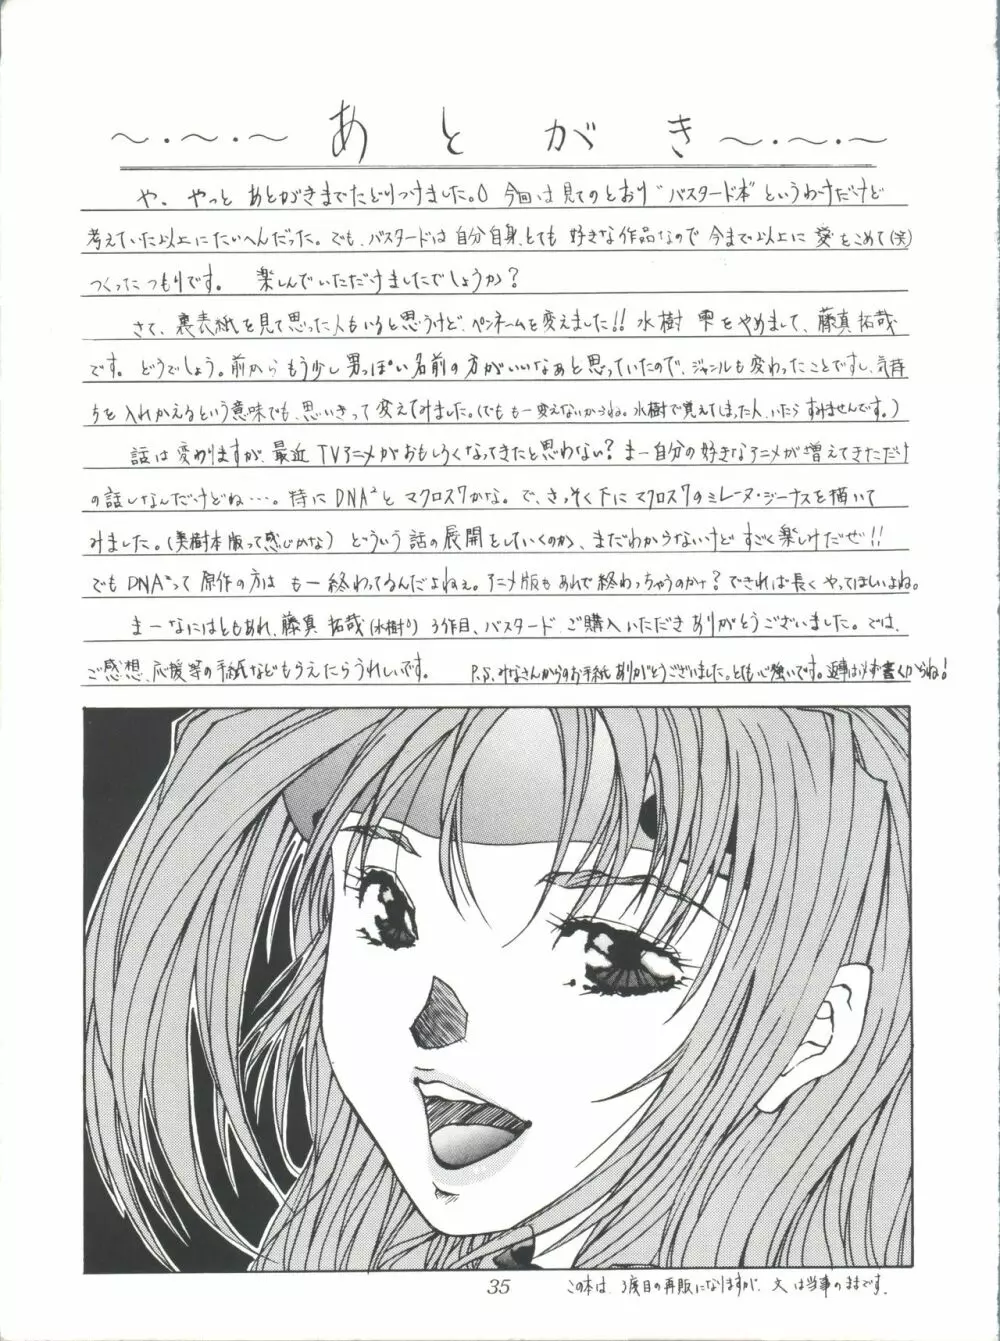 ～・～・～ あとがき ～・～・～
や、やっと あとがきまでたどりつけました。今回は見てのとおり“バスタード本”というわけだけど
考えていた以上にたいへんだった。でも、バスタードは自分自身、とても 好きな作品なので 今まで以上に 愛をこめて(笑)
つくったつもりです。 楽しんでいただけましたでしょうか？
さて、裏表紙を見て思った人もいると思うけど、ペンネームを変えました!! 水樹 雫をやめまして、藤真 拓哉
です。どうでしょう。前から もう少し男っぽい名前の方がいいなあと思っていたので、ジャンルも変わったことですし、気持
ちを入れかえるという意味でも、思いきって変えてみました。(でももー変えないからね。水樹で覚えてしまった人、いたら すみませんです。)
話は変わりますが、最近TVアニメがおもしろくなってきたと思わない？まー自分の好きなアニメが増えてきただけ
の話しなんだけどね…。特にDNA²とマクロス7かな。で、さっそく下にマクロス7のミレーヌ・ジーナスを描いて
みました。(美樹本版って感じかな) どういう話の展開をしていくのか、まだわからないけど すごく楽しみだぜ!!
でもDNA²って 原作の方は もー終わってるんだよねぇ。アニメ版もあれで終わっちゃうのかナ？できれば長くやってほしいよね。
まーなにはともあれ、藤真 拓哉(水樹) 3作目、バスタード ご購入いただき ありがとうございました。では、
ご感想、応援等の手紙などもらえたらうれしいです。 P.S.みなさんからのお手紙ありがとうございました。とても心強いです。返事は必ず書くからね！
35
この本は、3度目の再販になりますが、文は当事のままです。